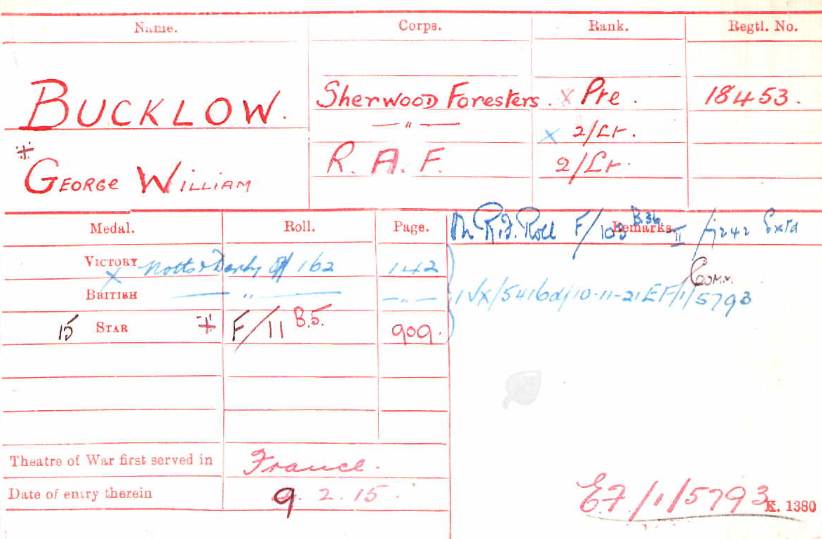 Name. Corps. Rank. Regtl. No.
BUCKLOW. Sherwood Foresters. x Pte. 18453.
— " — x 2/Lt.
GEORGE WILLIAM R. A. F. 2/Lt.
Medal. Roll. Page. Remarks.
Roll F/103 B.36 II /7242
VICTORY x Notts & Derby 162 142
COMM.
BRITISH — " — — " — IVX/5416d/10-11-21 EF/1/5793
15 STAR F/11 B.5. 909.
Theatre of War first served in France.
Date of entry therein 9.2.15.
EF/1/5793 K. 1380